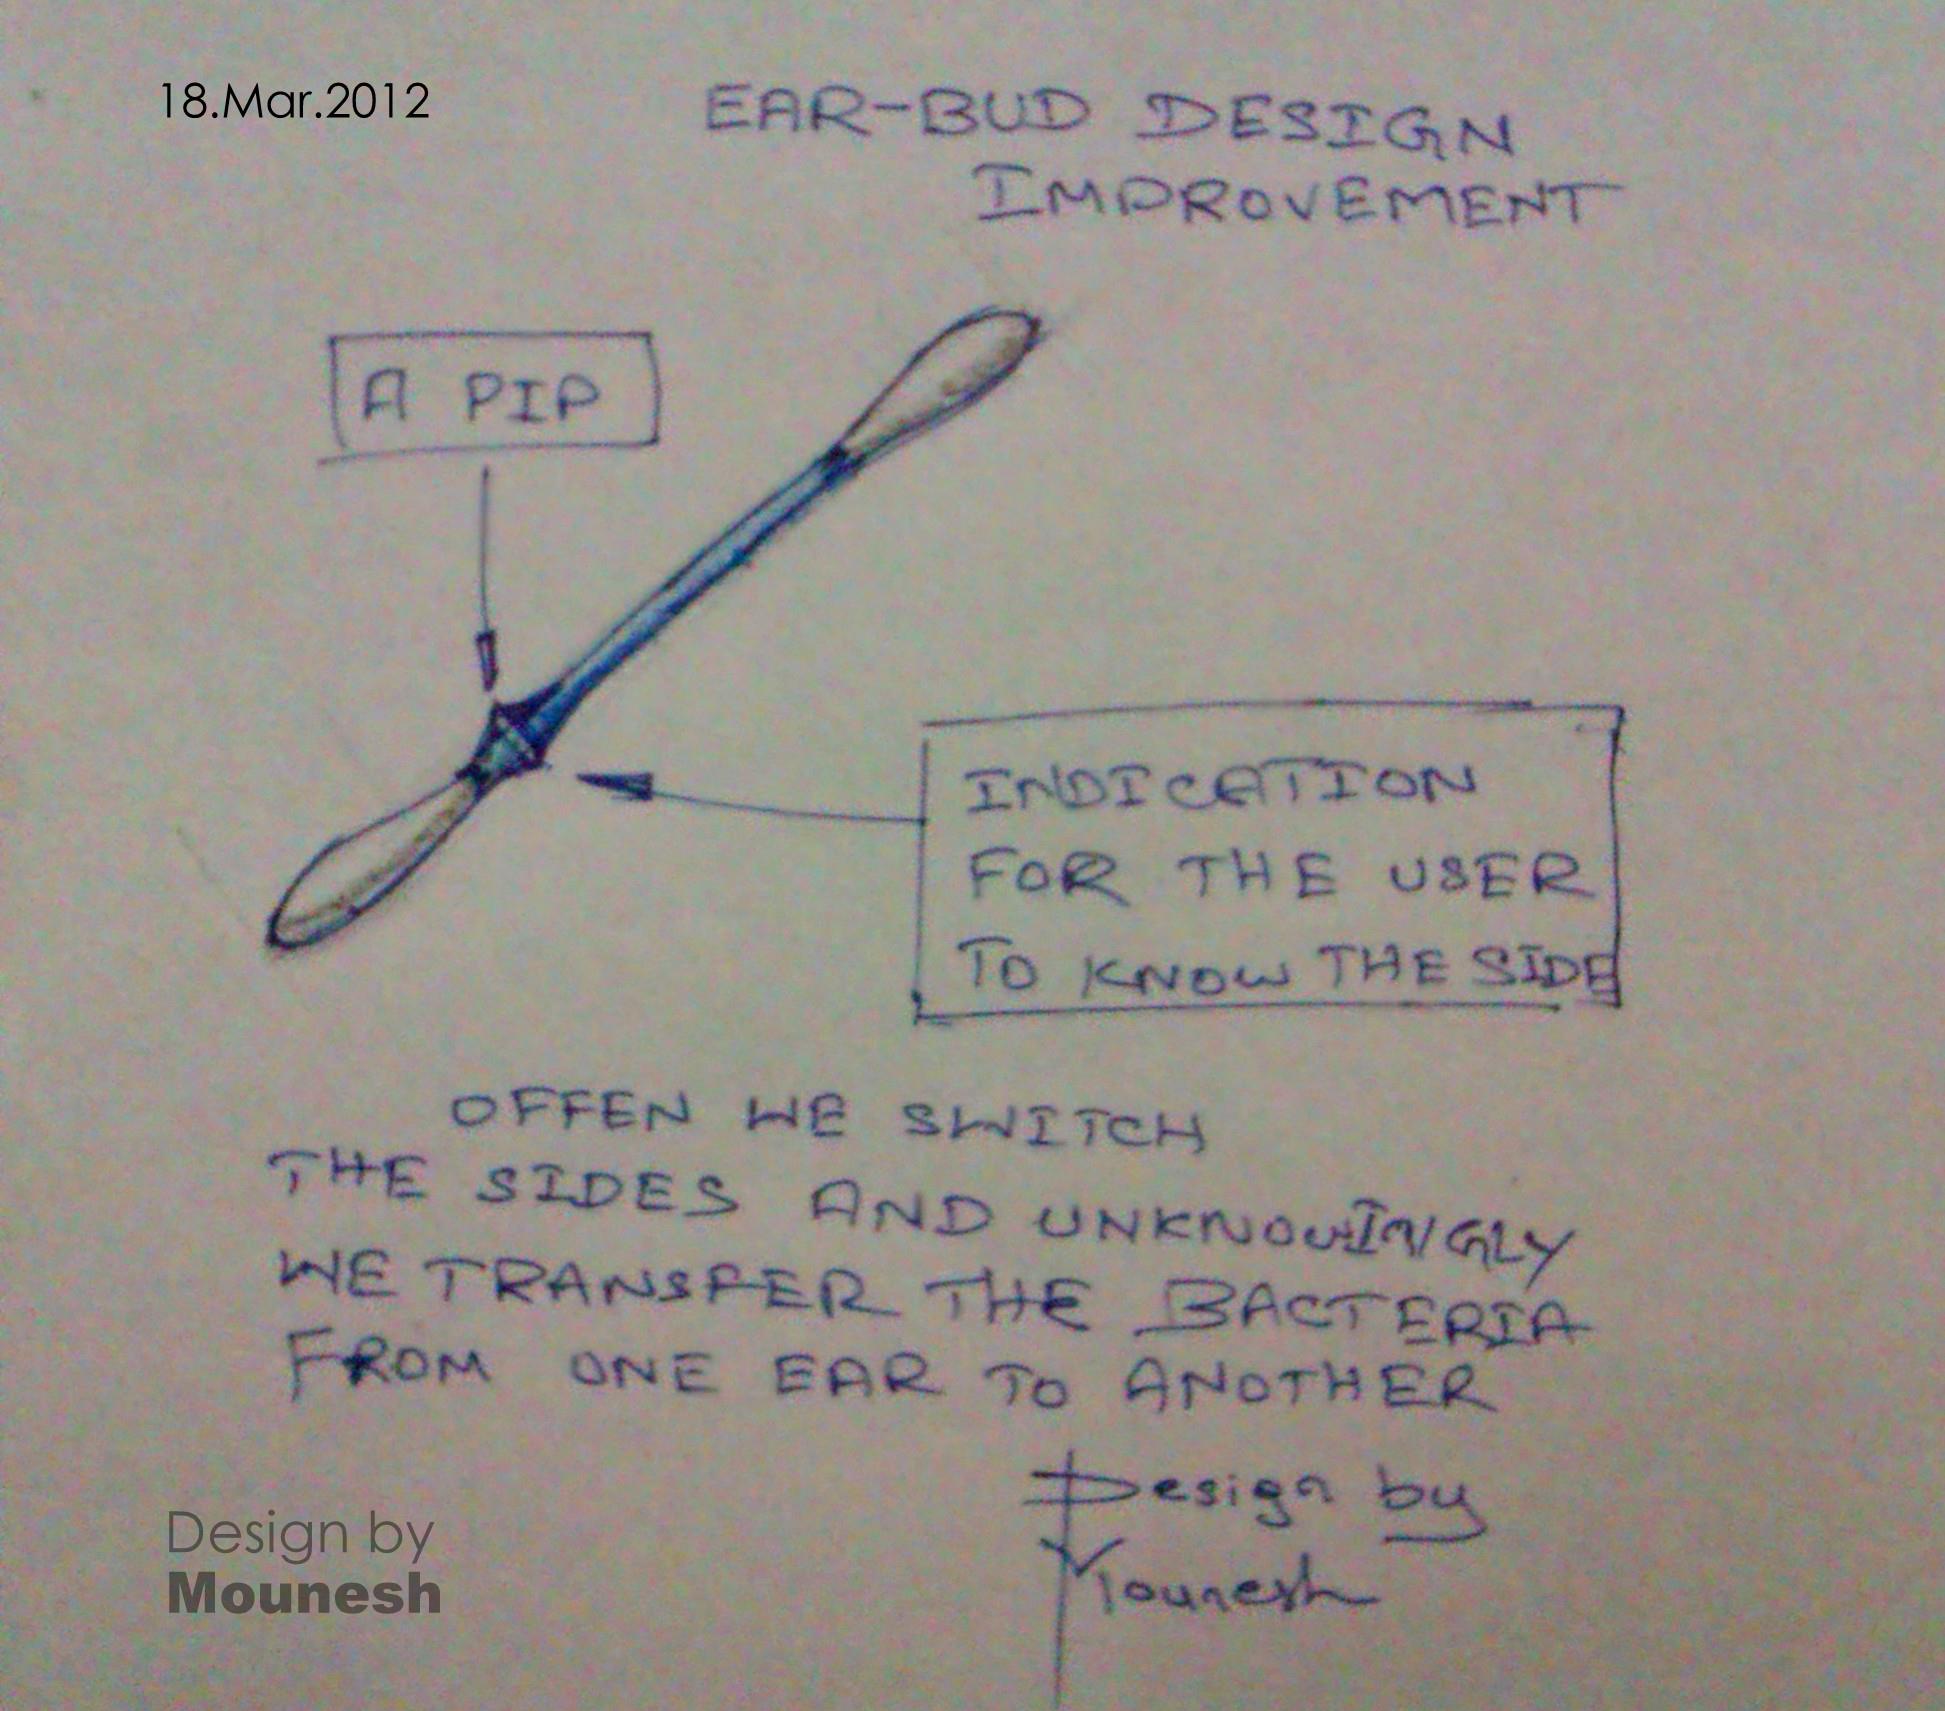 18.Mar.2012
EAR-BUD DESIGN
IMPROVEMENT
A PIP
INDICATION
FOR THE USER
TO KNOW THE SIDE
OFFEN WE SWITCH
THE SIDES AND UNKNOWINGLY
WE TRANSFER THE BACTERIA
FROM ONE EAR TO ANOTHER
Design by
Mounesh
Design by
Mounesh